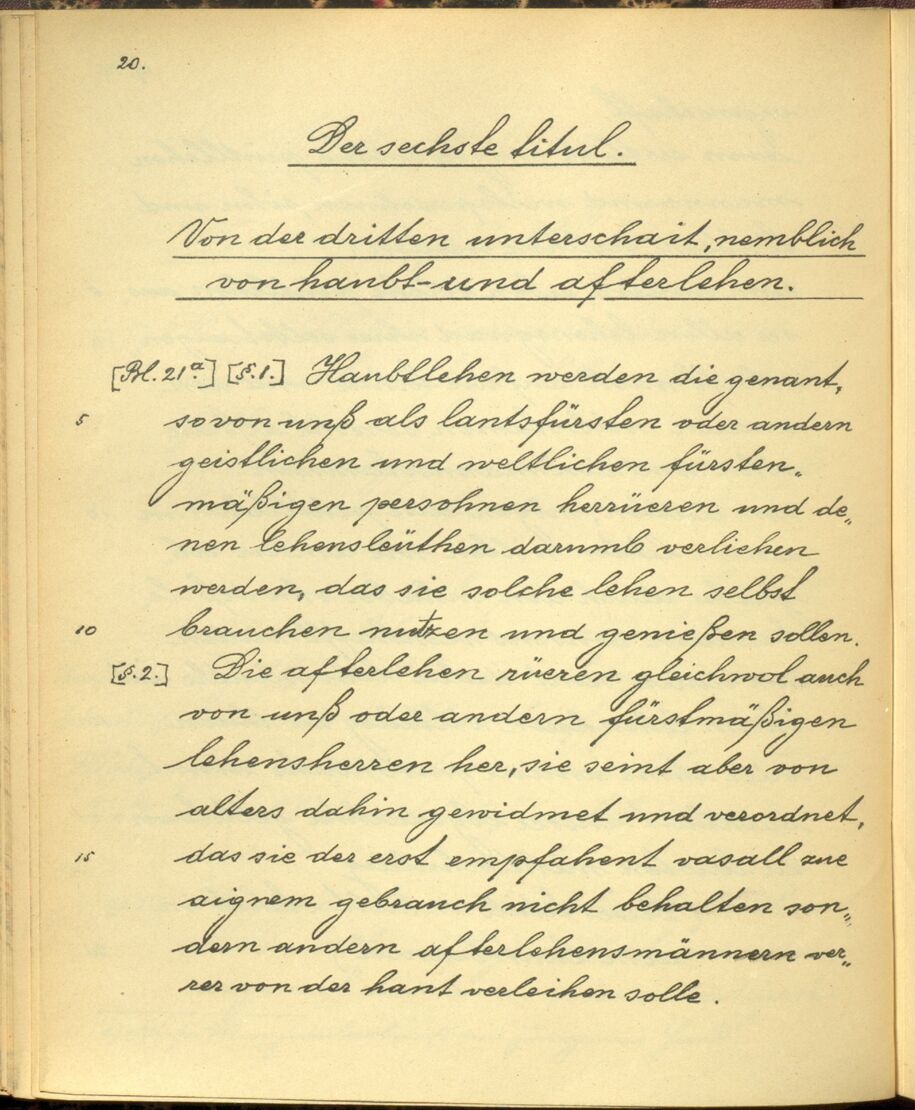 20.
Der sechste titul.
Von der dritten unterschait, nemblich
von haubt- und afterlehen.
[Bl. 21a.] [§.1.] Haubtlehen werden die genant,
5 so von unß als lantsfürsten oder andern
geistlichen und weltlichen fürsten„
mäßigen persohnen herrüeren und de„
nen lehensleüthen darumb verliehen
werden, das sie solche lehen selbst
10 brauchen nutzen und genießen sollen.
[§.2.] Die afterlehen rüeren gleichwol auch
von unß oder andern fürstmäßigen
lehensherren her, sie seint aber von
alters dahin gewidmet und verordnet,
15 das sie der erst empfahent vasall zue
aignem gebrauch nicht behalten son„
dern andern afterlehensmännern ver„
rer von der hant verleihen solle.